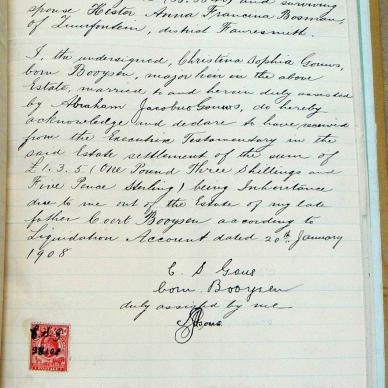 spouse Hester Anna Francina Bosman,
of Zuurfontein, district Fauresmith.
I, the undersigned, Christina Sophia Gouws,
born Booysen, major heir in the above
Estate, married to and herein duly assisted
by Abraham Jacobus Gouws, do hereby
acknowledge and declare to have received
from the Executrix Testamentary in the
said Estate settlement of the sum of
£1.3.5 (One Pound Three Shillings and
Five Pence Sterling) being Inheritance
due to me out of the Estate of my late
father Coert Booysen according to
Liquidation Account dated 20th January
1908
C. S Gous
born Booysen
duly assisted by me